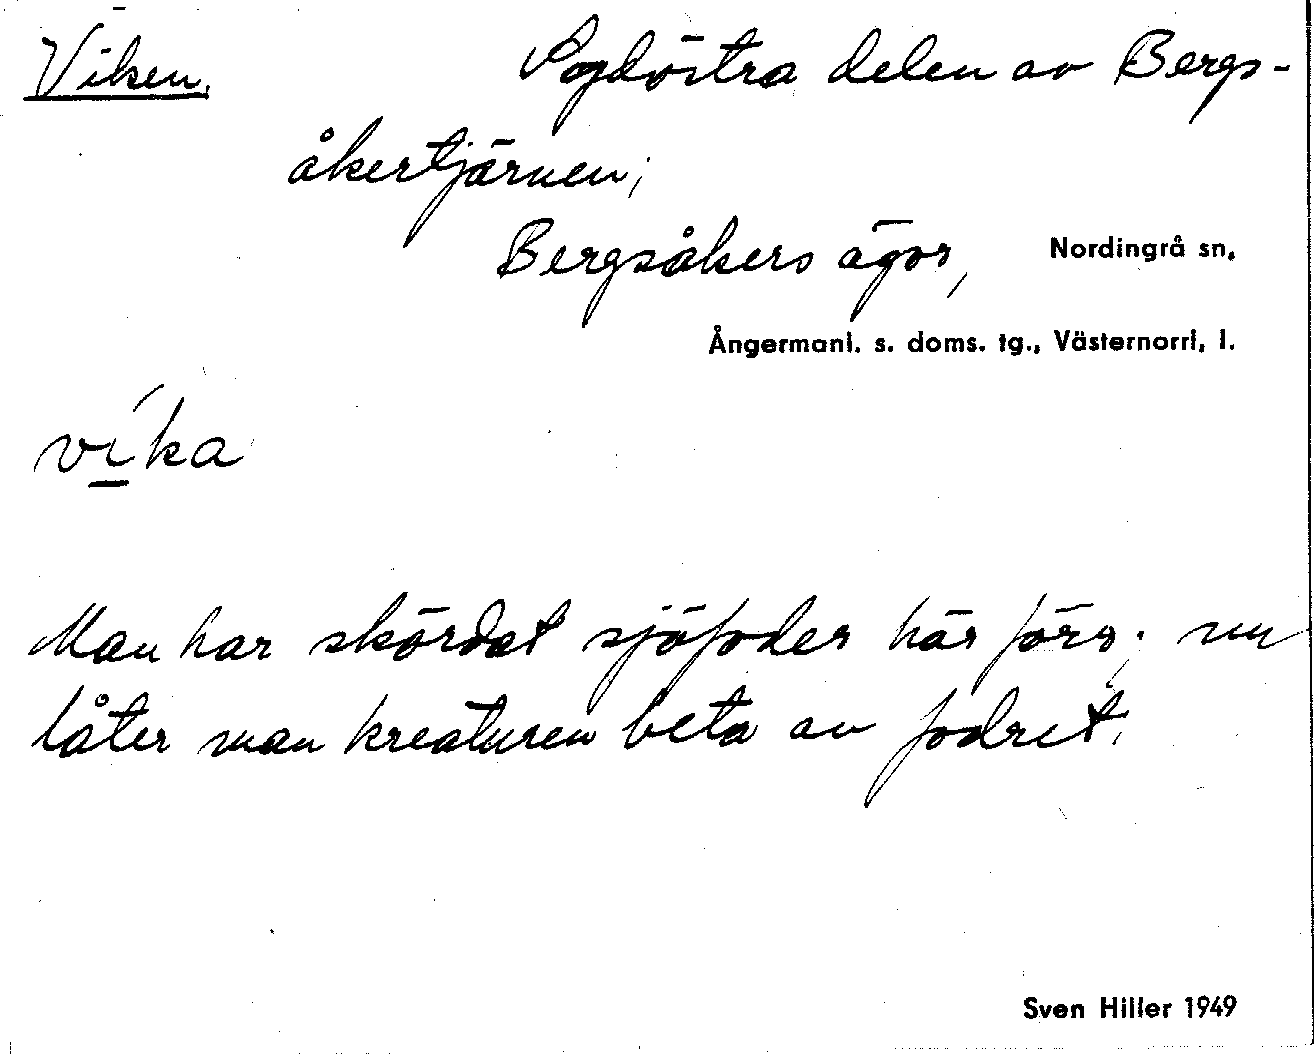 Viken. Sydöstra delen av Bergs-
åkertjärnen;
Bergsåkers ägor, Nordingrå sn,
Ångermanl. s. doms. tg., Västernorrl. l.
víka
Man har skördat sjöfoder här förr; nu
låter man kreaturen beta av fodret.
Sven Hiller 1949